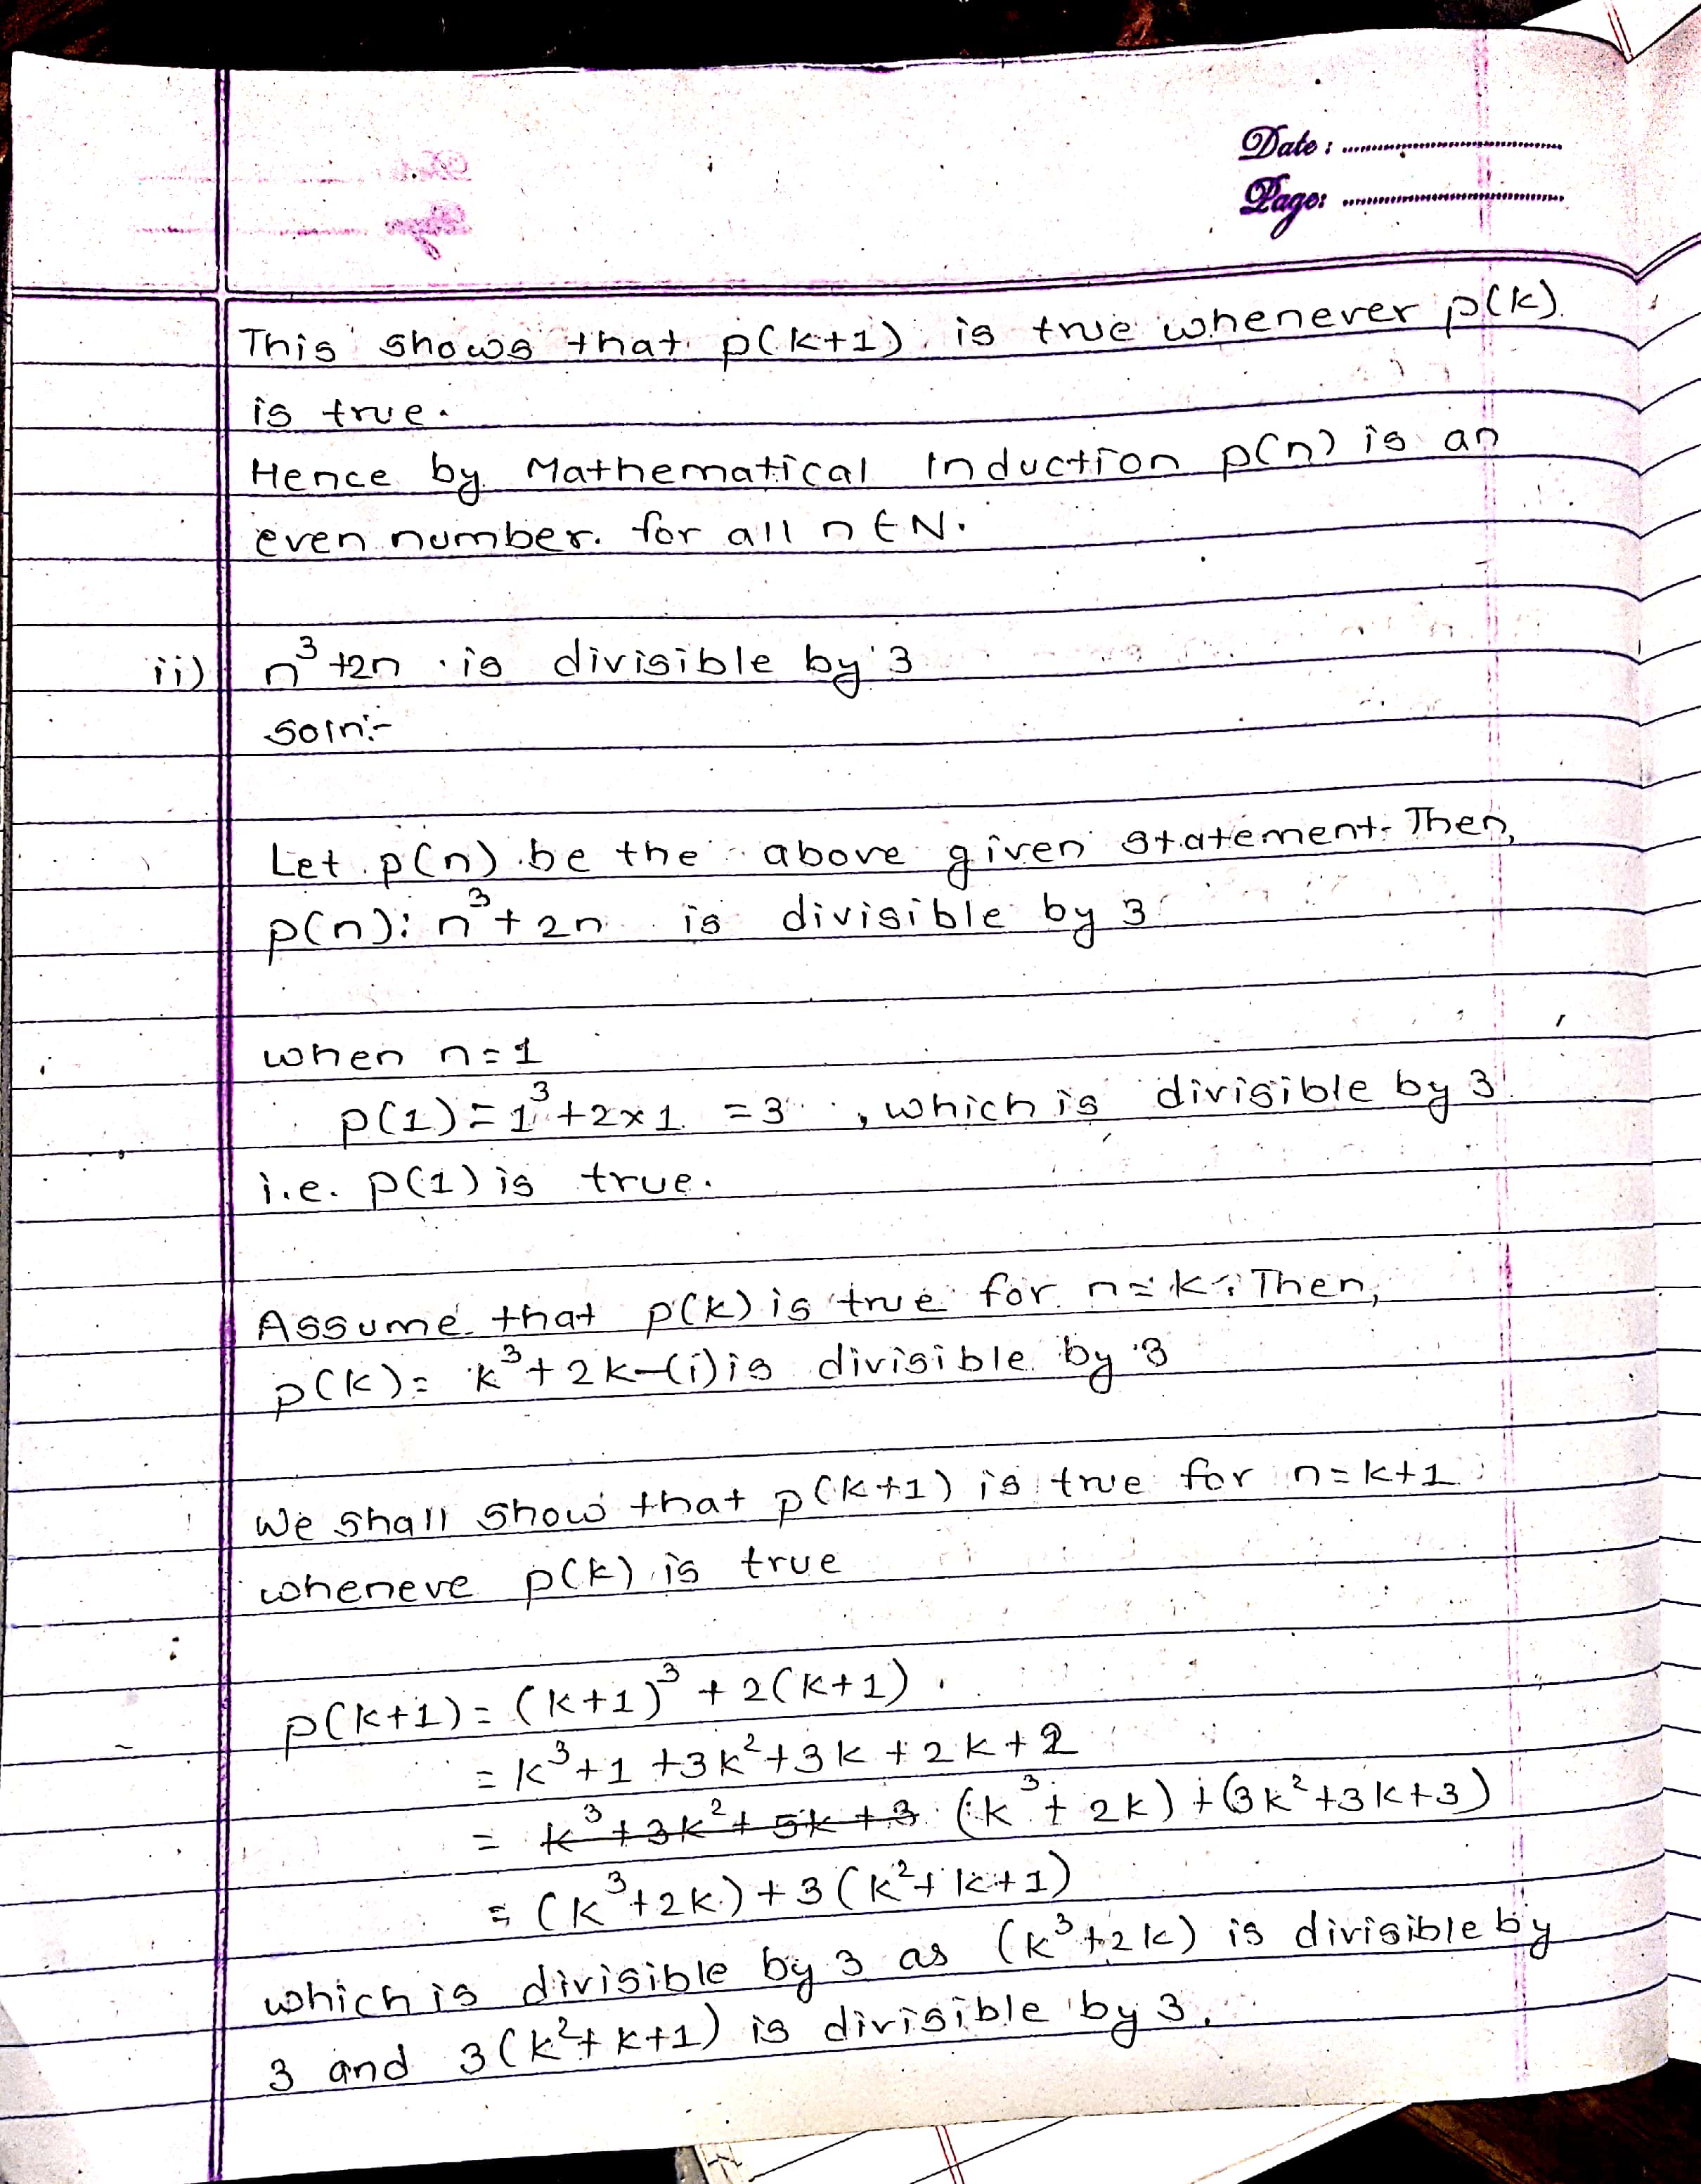 Date : ..........
Page: ..........
This shows that p(k+1) is true whenever p(k)
is true.
Hence by Mathematical Induction p(n) is an
even number. for all n ∈ N.
ii) n³+2n is divisible by 3
soln:-
Let p(n) be the above given statement. Then,
p(n): n³+2n is divisible by 3
when n=1
p(1) = 1³+2×1 = 3 , which is divisible by 3
i.e. p(1) is true.
Assume that p(k) is true for n=k. Then,
p(k) = k³+2k-(i) is divisible by 3
We shall show that p(k+1) is true for n=k+1
wheneve p(k) is true
p(k+1) = (k+1)³ + 2(k+1).
= k³+1 +3k²+3k +2k+2
= ~~k³+3k²+5k+3~~ (k³+2k)+(3k²+3k+3)
= (k³+2k)+3(k²+k+1)
which is divisible by 3 as (k³+2k) is divisible by
3 and 3(k²+k+1) is divisible by 3.